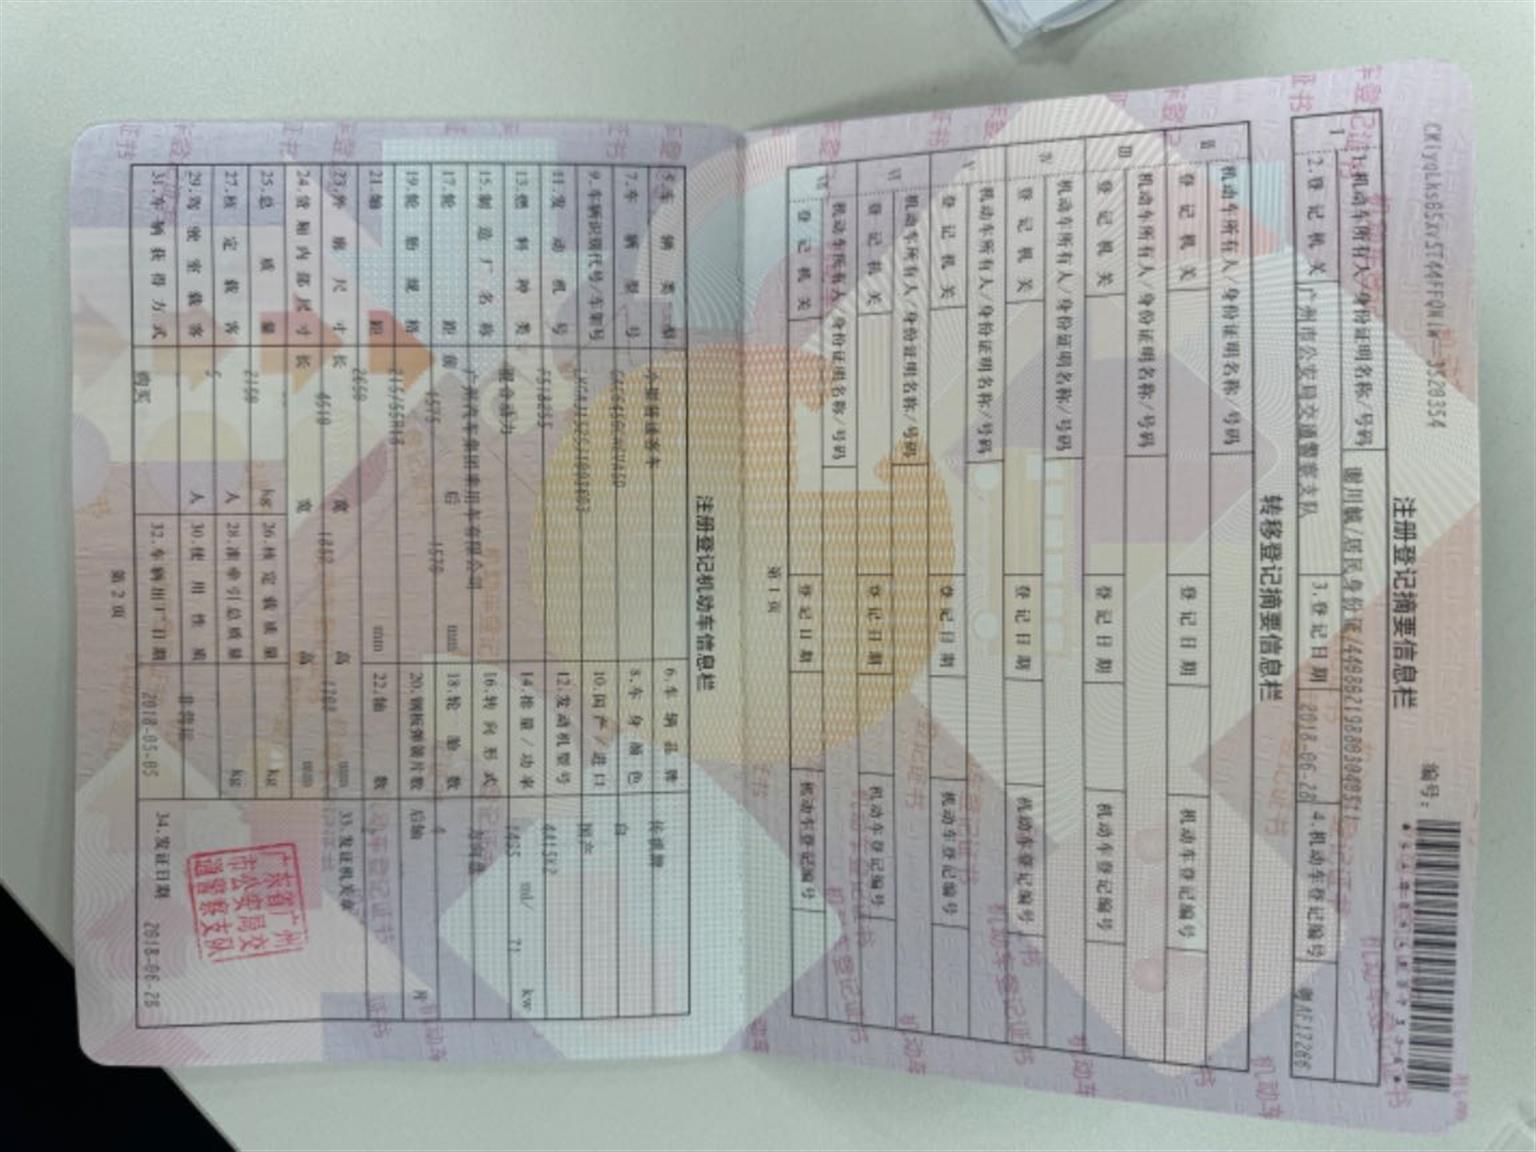 注册登记摘要信息栏
编号:
1.机动车所有人/身份证明名称/号码
2.登记机关 广州市公安局交通警察支队 3.登记日期 2018-06-28 4.机动车登记编号
转移登记摘要信息栏
机动车所有人/身份证明名称/号码
登记机关 登记日期 机动车登记编号
III 机动车所有人/身份证明名称/号码
登记机关 登记日期 机动车登记编号
IV 机动车所有人/身份证明名称/号码
登记机关 登记日期 机动车登记编号
V 机动车所有人/身份证明名称/号码
登记机关 登记日期 机动车登记编号
VI 机动车所有人/身份证明名称/号码
登记机关 登记日期 机动车登记编号
VII 机动车所有人/身份证明名称/号码
登记机关 登记日期 机动车登记编号
第1页
注册登记机动车信息栏
5.车辆类型 小型普通客车 6.车辆品牌 传祺牌
7.车辆型号 8.车身颜色 白
9.车辆识别代号/车架号 10.国产/进口 国产
11.发动机号 12.发动机型号
13.燃料种类 混合动力 14.排量/功率 ml/ 71 kw
15.制造厂名称 广州汽车集团乘用车有限公司 16.转向形式 方向盘
17.轮距 前 1575 后 1570 mm 18.轮胎数 4
19.轮胎规格 215/55R18 20.钢板弹簧片数 后轴 片
21.轴距 2650 mm 22.轴数
23.外廓尺寸 长 4510 宽 1852 高 1708 mm 33.发证机关章
24.货厢内部尺寸 长 宽 高 mm
25.总质量 2160 kg 26.核定载质量 kg
27.核定载客 5 人 28.准牵引总质量 kg
29.驾驶室载客 人 30.使用性质 非营运
31.车辆获得方式 购买 32.车辆出厂日期 2018-05-05 34.发证日期 2018-06-28
广东省广州
市公安局交
通警察支队
第2页